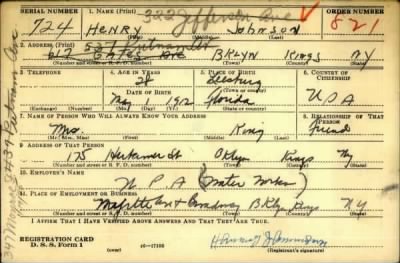 SERIAL NUMBER 1. NAME (Print) 322 Jefferson Ave ORDER NUMBER
724 HENRY JOHNSON 821
(First) (Middle) (Last)
2. ADDRESS (Print)
BKLYN KINGS NY
(Number and street or R. F. D. number) (Town) (County) (State)
3. TELEPHONE 4. AGE IN YEARS 5. PLACE OF BIRTH 6. COUNTRY OF CITIZENSHIP
28 Leesburg
DATE OF BIRTH (Town or county)
May 1 1912 Florida USA
(Exchange) (Number) (Mo.) (Day) (Yr.) (State or country)
7. NAME OF PERSON WHO WILL ALWAYS KNOW YOUR ADDRESS 8. RELATIONSHIP OF THAT PERSON
Mrs. King friend
(Mr., Mrs., Miss) (First) (Middle) (Last)
9. ADDRESS OF THAT PERSON
175 Herkimer St Bklyn Kings Ny
(Number and street or R. F. D. number) (Town) (County) (State)
10. EMPLOYER'S NAME
W.P.A (Water Works)
11. PLACE OF EMPLOYMENT OR BUSINESS
& Broadway Bklyn Kings NY
(Number and street or R. F. D. number) (Town) (County) (State)
I AFFIRM THAT I HAVE VERIFIED ABOVE ANSWERS AND THAT THEY ARE TRUE.
REGISTRATION CARD
D. S. S. Form 1 (over) 16—17105